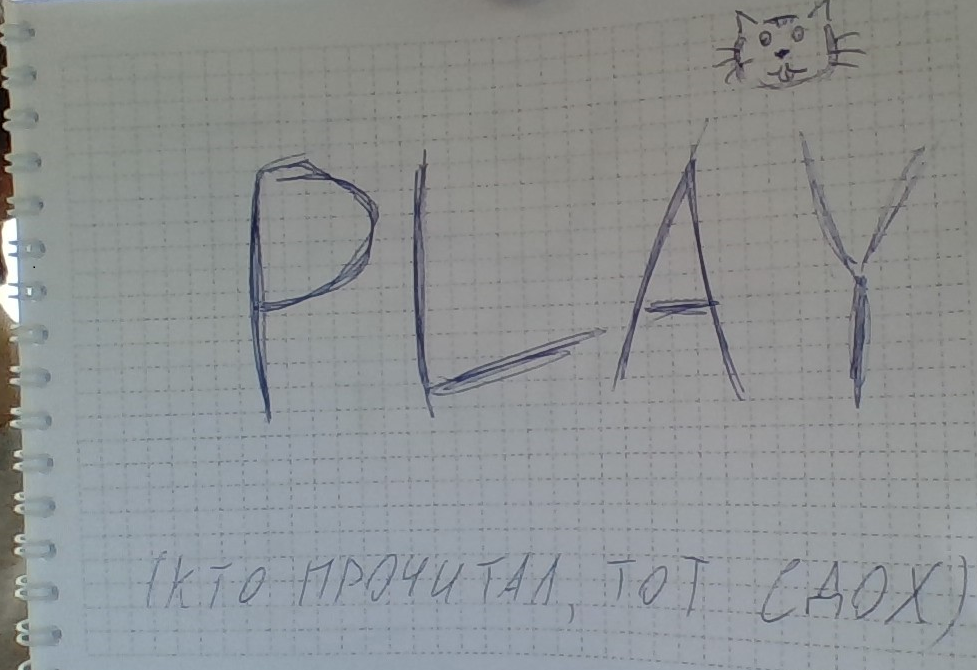 PLAY
(КТО ПРОЧИТАЛ, ТОТ СДОХ)